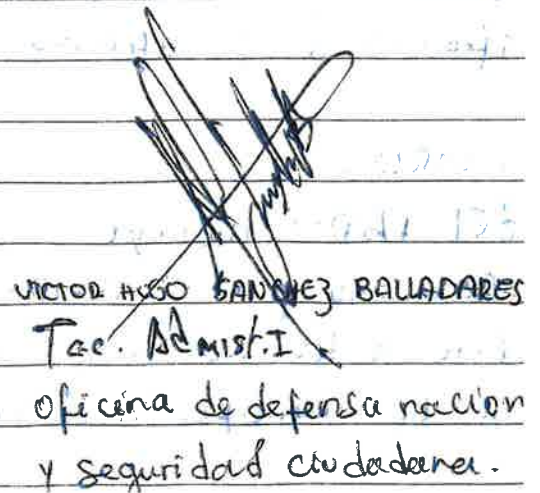 VICTOR HUGO SANCHEZ BALLADARES
Tec. Admist. I
oficina de defensa nacion
y seguridad ciudadana.